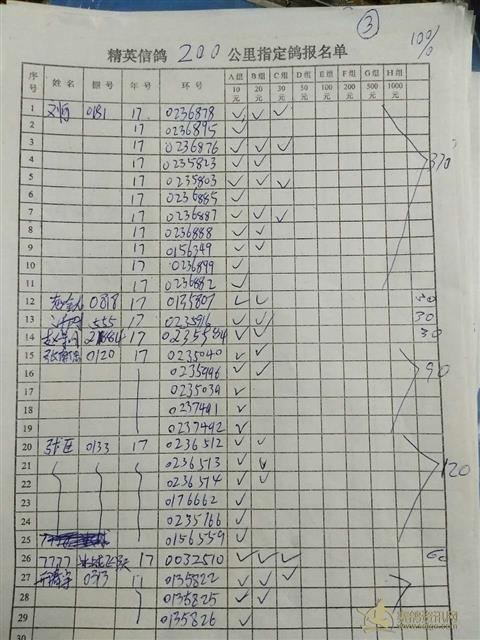 ③
10%
精英信鸽 200 公里指定鸽报名单
序号 姓名 棚号 年号 环号 A组 10元 B组 20元 C组 30元 D组 50元 E组 100元 F组 200元 G组 500元 H组 1000元
1 0181 17 0236878 ✓ ✓ ✓
2 17 0236895 ✓
3 17 0236876 ✓ ✓ ✓
4 17 0235823 ✓ ✓ 370
5 17 0235803 ✓ ✓ ✓
6 17 0236885 ✓
7 17 0236887 ✓ ✓ ✓
8 17 0236888 ✓ ✓
9 17 0156349 ✓ ✓
10 17 0236899 ✓
11 17 0236882 ✓
12 0818 17 0135807 ✓ ✓ 30
13 555 17 0235916 ✓ ✓ 30
14 17 0235584 ✓ ✓ 30
15 0120 17 0235040 ✓ ✓
16 0235996 ✓ ✓ 90
17 0235039 ✓
18 0237491 ✓
19 0237492 ✓
20 0133 17 0236512 ✓ ✓
21 0236513 ✓ ✓ 120
22 0236514 ✓ ✓
23 0176662 ✓
24 0235166 ✓
25 0156559 ✓
26 7777 17 0032510 ✓ ✓ ✓ 60
27 0313 17 0135822 ✓ ✓
28 0135825 ✓ ✓
29 0135826 ✓ ✓